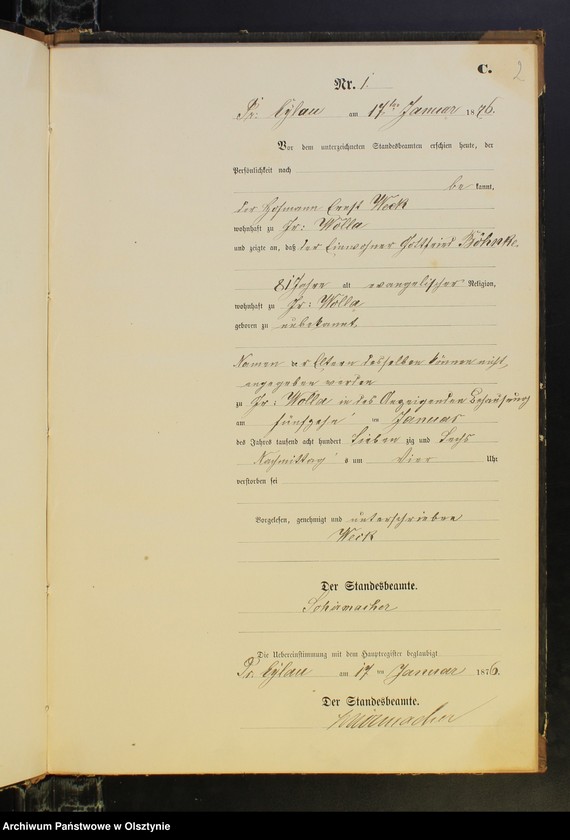 C.
2
Nr. 1.
Pr. Eylau am 17ten Januar 1876.
Vor dem unterzeichneten Standesbeamten erschien heute, der
Persönlichkeit nach
bekannt,
der Hofmann Ernst Weck
wohnhaft zu Gr: Wolla
und zeigte an, daß der Einwohner Gottfried Böhnke.
81 Jahre alt evangelischer Religion,
wohnhaft zu Gr: Wolla
geboren zu unbekannt
Namen der Eltern desselben können nicht
angegeben werden
zu Gr. Wolla in des Anzeigenden Behausung
am fünfzehn ten Januar
des Jahres tausend acht hundert siebenzig und sechs
Nachmittags um vier Uhr
verstorben sei
Vorgelesen, genehmigt und unterschrieben
Weck
Der Standesbeamte.
Schumacher
Die Uebereinstimmung mit dem Hauptregister beglaubigt
Pr. Eylau am 17 ten Januar 1876.
Der Standesbeamte.
Schumacher
Archiwum Państwowe w Olsztynie